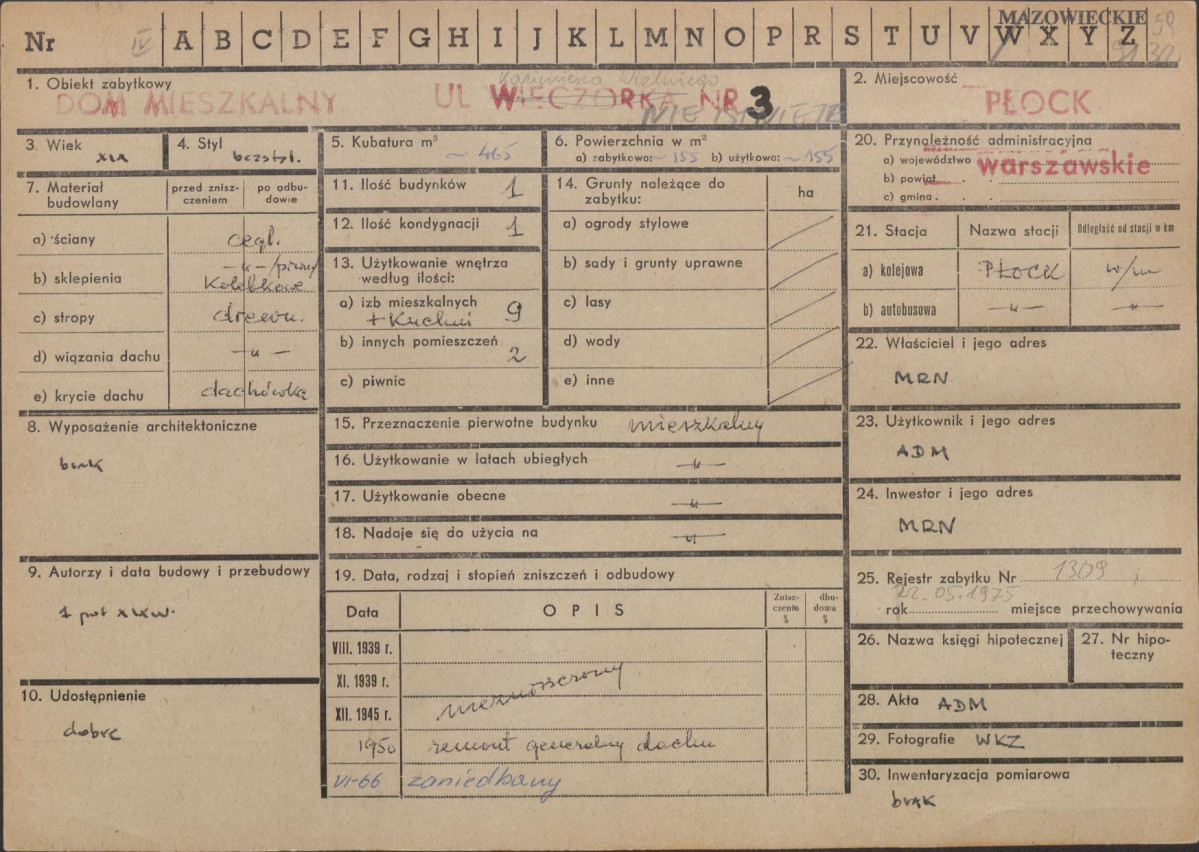 MAZOWIECKIE
Nr IV A B C D E F G H I J K L M N O P R S T U V W X Y Z
1. Obiekt zabytkowy
Kazimierza Wielkiego
DOM MIESZKALNY UL WIECZORKA NR 3
NIE ISTNIEJE
2. Miejscowość
PŁOCK
3. Wiek
XIX
4. Styl
bezstyl.
5. Kubatura m³
~ 465
6. Powierzchnia w m²
a) zabytkowa: ~ 155 b) użytkowa: ~ 155
7. Materiał budowlany
przed zniszczeniem
po odbudowie
a) ściany cegl.
b) sklepienia —„— /piwn/
Kolebkowe
c) stropy drewn.
d) wiązania dachu —„—
e) krycie dachu dachówka
8. Wyposażenie architektoniczne
brak
9. Autorzy i data budowy i przebudowy
1 poł XIX w.
10. Udostępnienie
dobre
11. Ilość budynków 1
12. Ilość kondygnacji 1
13. Użytkowanie wnętrza
według ilości:
a) izb mieszkalnych
+ Kuchni 9
b) innych pomieszczeń
2
c) piwnic
14. Grunty należące do
zabytku:
ha
a) ogrody stylowe
b) sady i grunty uprawne
c) lasy
d) wody
e) inne
15. Przeznaczenie pierwotne budynku mieszkalny
16. Użytkowanie w latach ubiegłych —„—
17. Użytkowanie obecne —„—
18. Nadaje się do użycia na —„—
19. Data, rodzaj i stopień zniszczeń i odbudowy
Data OPIS Zniszczenia % dbudowa %
VIII. 1939 r.
XI. 1939 r.
niezniszczony
XII. 1945 r.
1950 remont generalny dachu
VI-66 zaniedbany
20. Przynależność administracyjna
a) województwo warszawskie
b) powiat
c) gmina
21. Stacja
Nazwa stacji
Odległość od stacji w km
a) kolejowa PŁOCK w/m
b) autobusowa —„— —„—
22. Właściciel i jego adres
MRN
23. Użytkownik i jego adres
ADM
24. Inwestor i jego adres
MRN
25. Rejestr zabytku Nr 1309
22.05.1975
rok miejsce przechowywania
26. Nazwa księgi hipotecznej
27. Nr hipoteczny
28. Akta ADM
29. Fotografie WKZ
30. Inwentaryzacja pomiarowa
brak